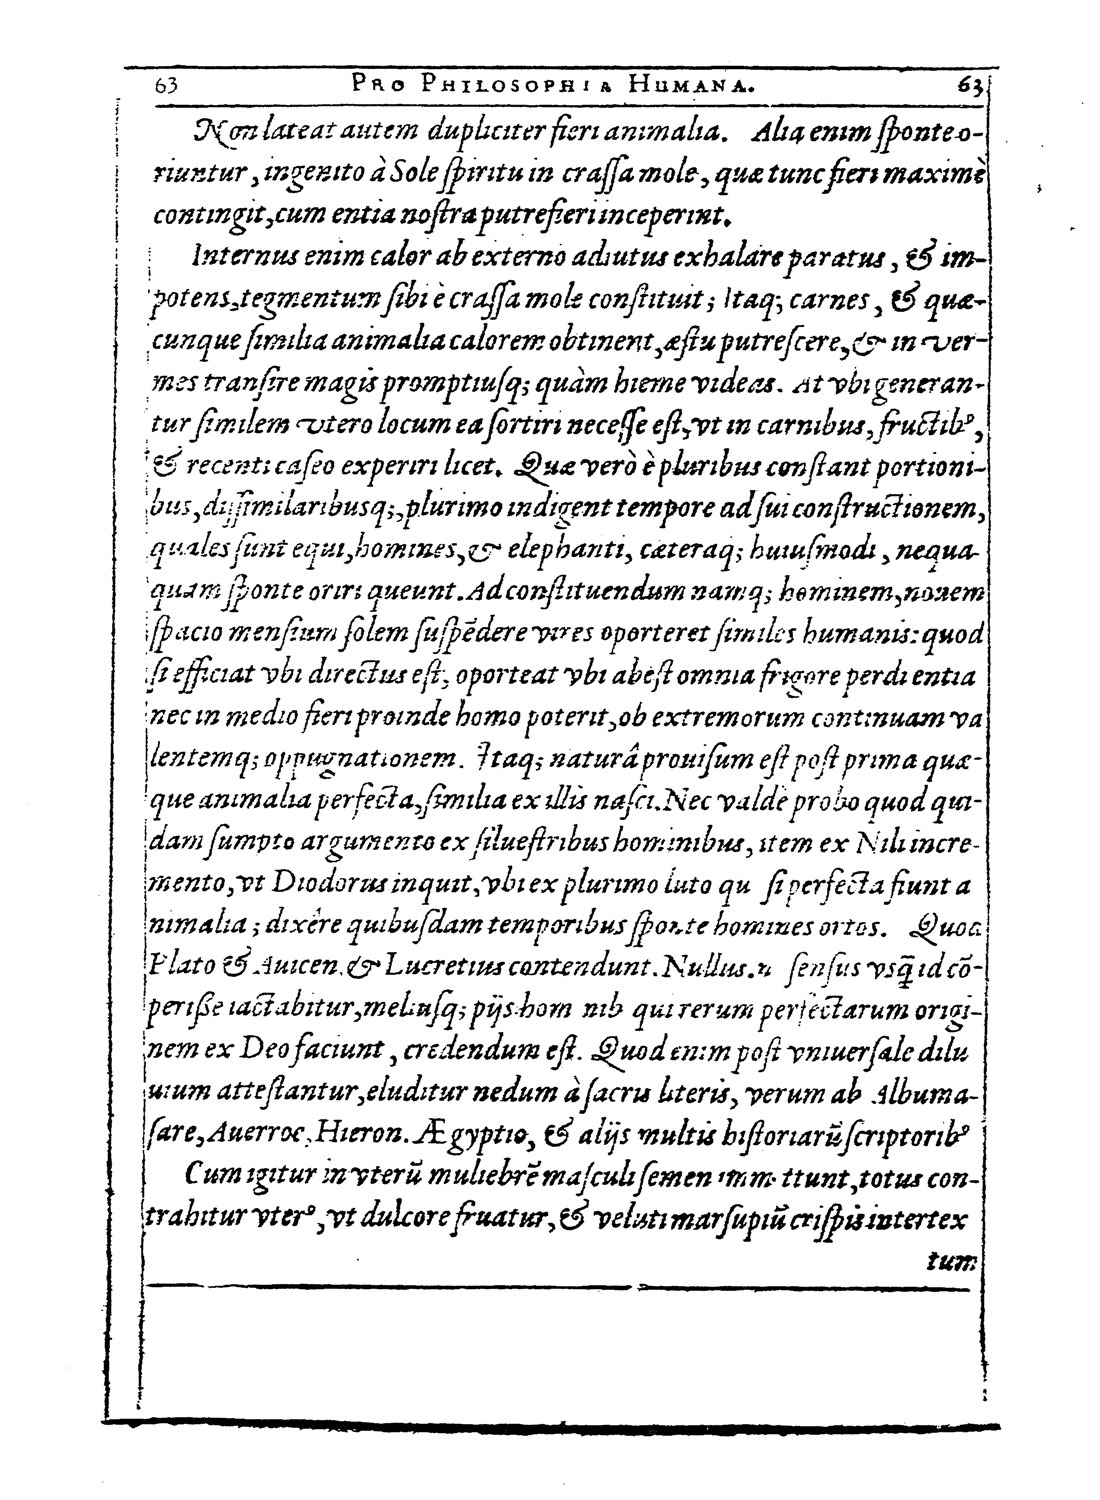 63 PRO PHILOSOPHIA HUMANA. 63
Non lateat autem dupliciter fieri animalia. Aliq enim ſponte o-
riuntur, ingenito à Sole ſpiritu in craſſa mole, quæ tunc fieri maximè
contingit, cum entia noſtra putrefieri inceperint.
Internus enim calor ab externo adiutus exhalare paratus, & im-
potens, tegmentum ſibi è craſſa mole conſtituit; Itaq; carnes, & quæ-
cunque ſimilia animalia calorem obtinent, æſtu putreſcere, & in ver-
mes tranſire magis promptiuſq; quàm hieme videas. At vbi generan-
tur ſimilem vtero locum ea ſortiri neceſſe eſt, vt in carnibus, fructibꝰ,
& recenti caſeo experiri licet. Quæ verò è pluribus conſtant portioni-
bus, diſſimilaribusq;, plurimo indigent tempore ad ſui conſtructionem,
quales ſunt equi, homines, & elephanti, cæteraq; huiuſmodi, nequa-
quam ſponte oriri queunt. Ad conſtituendum namq; hominem, nouem
ſpacio menſium ſolem ſuſpēdere vires oporteret ſimiles humanis: quod
ſi efficiat vbi directus eſt, oporteat vbi abeſt omnia frigore perdi entia
nec in medio fieri proinde homo poterit, ob extremorum continuam va
lentemq; oppugnationem. Itaq; naturâ prouiſum eſt poſt prima quæ-
que animalia perfecta, ſimilia ex illis naſci. Nec valdè probo quod qui-
dam ſumpto argumento ex ſilueſtribus hominibus, item ex Nili incre-
mento, vt Diodorus inquit, vbi ex plurimo luto qu ſi perfecta fiunt a
nimalia; dixêre quibuſdam temporibus ſponte homines ortos. Quod
Plato & Auicen. & Lucretius contendunt. Nullus ſenſus vsq̄ id cō-
periſſe iactabitur, meliuſq; pijs hom nib qui rerum perfectarum origi-
nem ex Deo faciunt, credendum eſt. Quod enim poſt vniuerſale dilu
uium atteſtantur, eluditur nedum à ſacris literis, verum ab Albuma-
ſare, Auerroe, Hieron. Ægyptio, & alijs multis hiſtoriarū ſcriptoribꝰ
Cum igitur in vterū muliebrē maſculi ſemen imm ttunt, totus con-
trahitur vterꝰ, vt dulcore fruatur, & veluti marſupiū criſpis intertex
tum